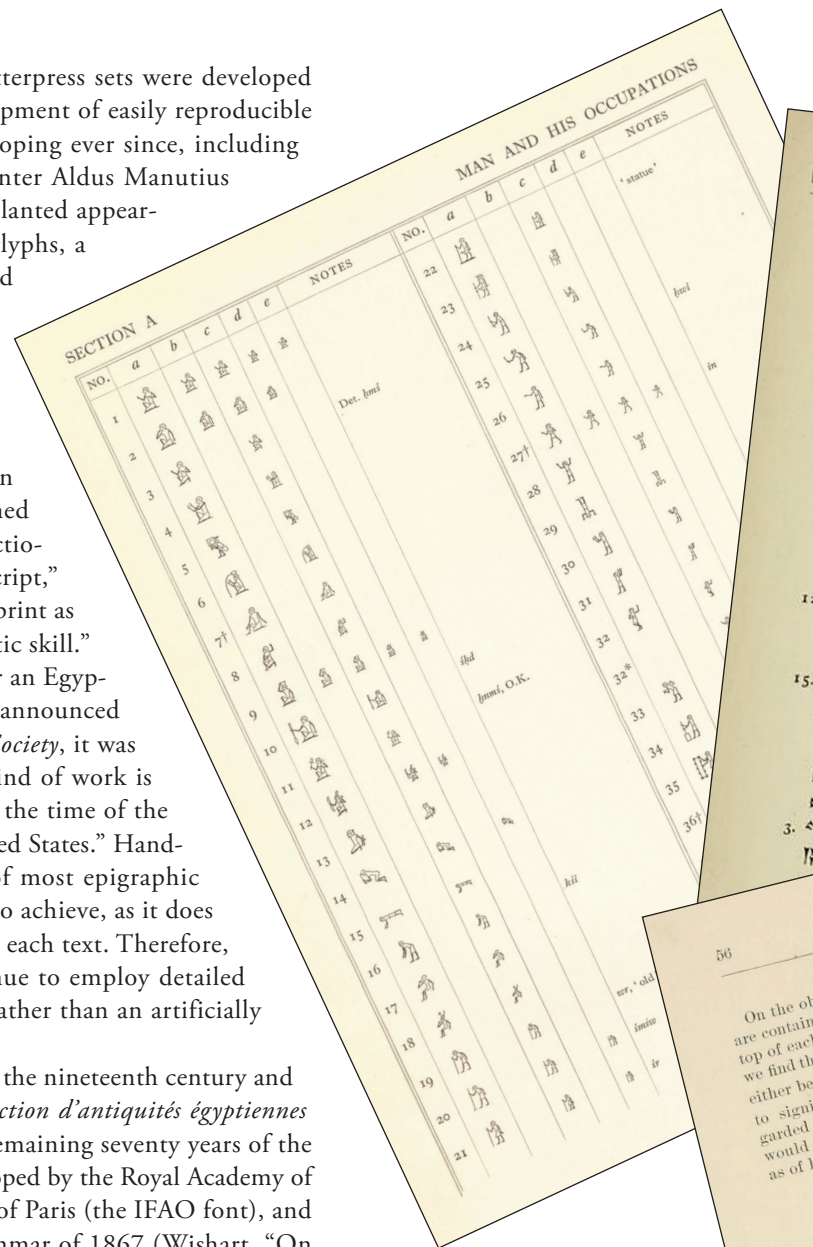 tterpress sets were developed
pment of easily reproducible
oping ever since, including
nter Aldus Manutius
lanted appear-
lyphs, a
d
n
ned
ctio-
cript,”
print as
tic skill.”
r an Egyp-
announced
Society, it was
ind of work is
the time of the
ed States.” Hand-
of most epigraphic
o achieve, as it does
each text. Therefore,
nue to employ detailed
ather than an artificially
the nineteenth century and
ction d’antiquités égyptiennes
emaining seventy years of the
oped by the Royal Academy of
of Paris (the IFAO font), and
mmar of 1867 (Wishart, “On
SECTION A
MAN AND HIS OCCUPATIONS
NO. a b c d e NOTES
1
2 Det. ḥmś
3
4
5
6
7†
8
9 iḳd
10 ḥnmś, O.K.
11
12
13
14
15 kśi
16
17
18 wr, ‘old
19 śmśw
20 ir
21
NO. a b c d e NOTES
22 ‘statue’
23
24
25 ḥwi
26
27† in
28
29
30
31
32
32*
33
34
35
36†
15.
3.
56
On the ob
are contain
top of each
we find th
either be
to signi
garded
would
as of